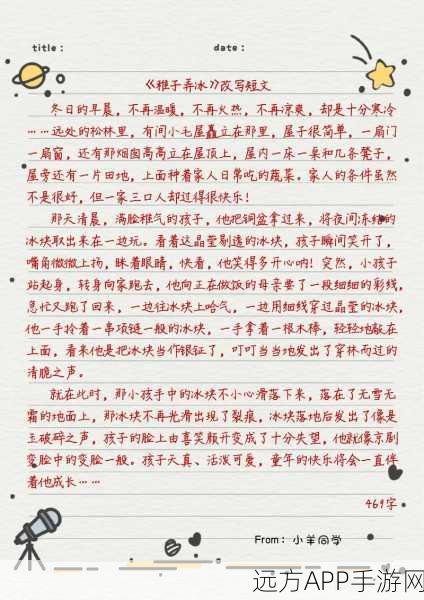 title：
date：
《稚子弄冰》改写短文
冬日的早晨，不再温暖，不再火热，不再凉爽，却是十分寒冷
……远处的松林里，有间小毛屋矗立在那里，屋子很简单，一扇门
一扇窗，还有那烟囱高高立在屋顶上，屋内一床一桌和几条凳子，
屋旁还有一片田地，上面种着家人日常吃的蔬菜。家人的条件虽然
不是很好，但一家三口人却过得很快乐！
那天清晨，满脸稚气的孩子，他把铜盆拿过来，将夜间冻结的
冰块取出来在一边玩。看着这晶莹剔透的冰块，孩子瞬间笑开了，
嘴角微微上扬，眯着眼睛，快看，他笑得多开心呐！突然，小孩子
站起身，转身向家跑去，他向正在做饭的母亲要了一段细细的彩线，
急忙又跑了回来，一边往冰块上哈气，一边用细线穿过晶莹的冰块，
他一手拎着一串项链一般的冰块，一手拿着一根木棒，轻轻地敲在
上面，看来他是把冰块当作银钲了，叮叮当当地发出了穿林而过的
清脆之声。
就在此时，那小孩手中的冰块不小心滑落下来，落在了无雪无
霜的地面上，那冰块不再光滑出现了裂痕，冰块落地后发出了像是
玉破碎之声，孩子的脸上由喜笑颜开变成了十分失望，他就像京剧
变脸中的变脸一般。孩子天真、活泼可爱，童年的快乐将会一直伴
着他成长……
469字
From：小羊同学
远方APP手游网